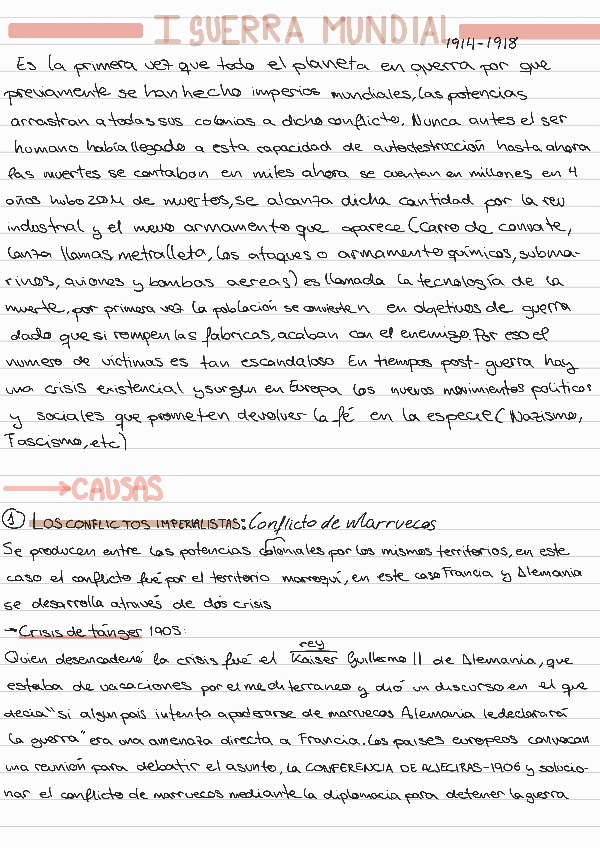 I GUERRA MUNDIAL 1914-1918
Es la primera vez que todo el planeta en guerra por que
previamente se han hecho imperios mundiales, las potencias
arrastran a todas sus colonias a dicho conflicto. Nunca antes el ser
humano había llegado a esta capacidad de autodestrucción hasta ahora
las muertes se contaban en miles ahora se cuentan en millones en 4
años hubo 20M de muertos, se alcanza dicha cantidad por la rev
industrial y el nuevo armamento que aparece (Carro de convate,
lanza llamas metralleta, los ataques o armamento químicos, subma-
rinos, aviones y bombas aereas) es llamada la tecnología de la
muerte. por primera vez la población se convierte n en objetivos de guerra
dado que si rompen las fabricas, acaban con el enemigo. Por eso el
numero de víctimas es tan escandaloso En tiempos post-guerra hay
una crisis existencial y surgen en Europa los nuevos movimientos políticos
y sociales que prometen devolver la fé en la especie (Nazismo,
Fascismo, etc)
→ CAUSAS
① LOS CONFLICTOS IMPERIALISTAS: Conflicto de Marruecos
Se producen entre las potencias coloniales por los mismos territorios, en este
caso el conflicto fué por el territorio marroquí, en este caso Francia y Alemania
se desarrolla através de dos crisis
→ Crisis de tánger 1905:
rey
Quien desencadenó la crisis fué el Kaiser Guillermo II de Alemania, que
estaba de vacaciones por el mediterraneo y dió un discurso en el que
decia "si algun pais intenta apoderarse de marruecos Alemania le declarará
la guerra" era una amenaza directa a Francia. Los paises europeos convocan
una reunión para debatir el asunto, la CONFERENCIA DE ALJECIRAS-1906 y solucio-
nar el conflicto de marruecos mediante la diplomacia para detener la guerra